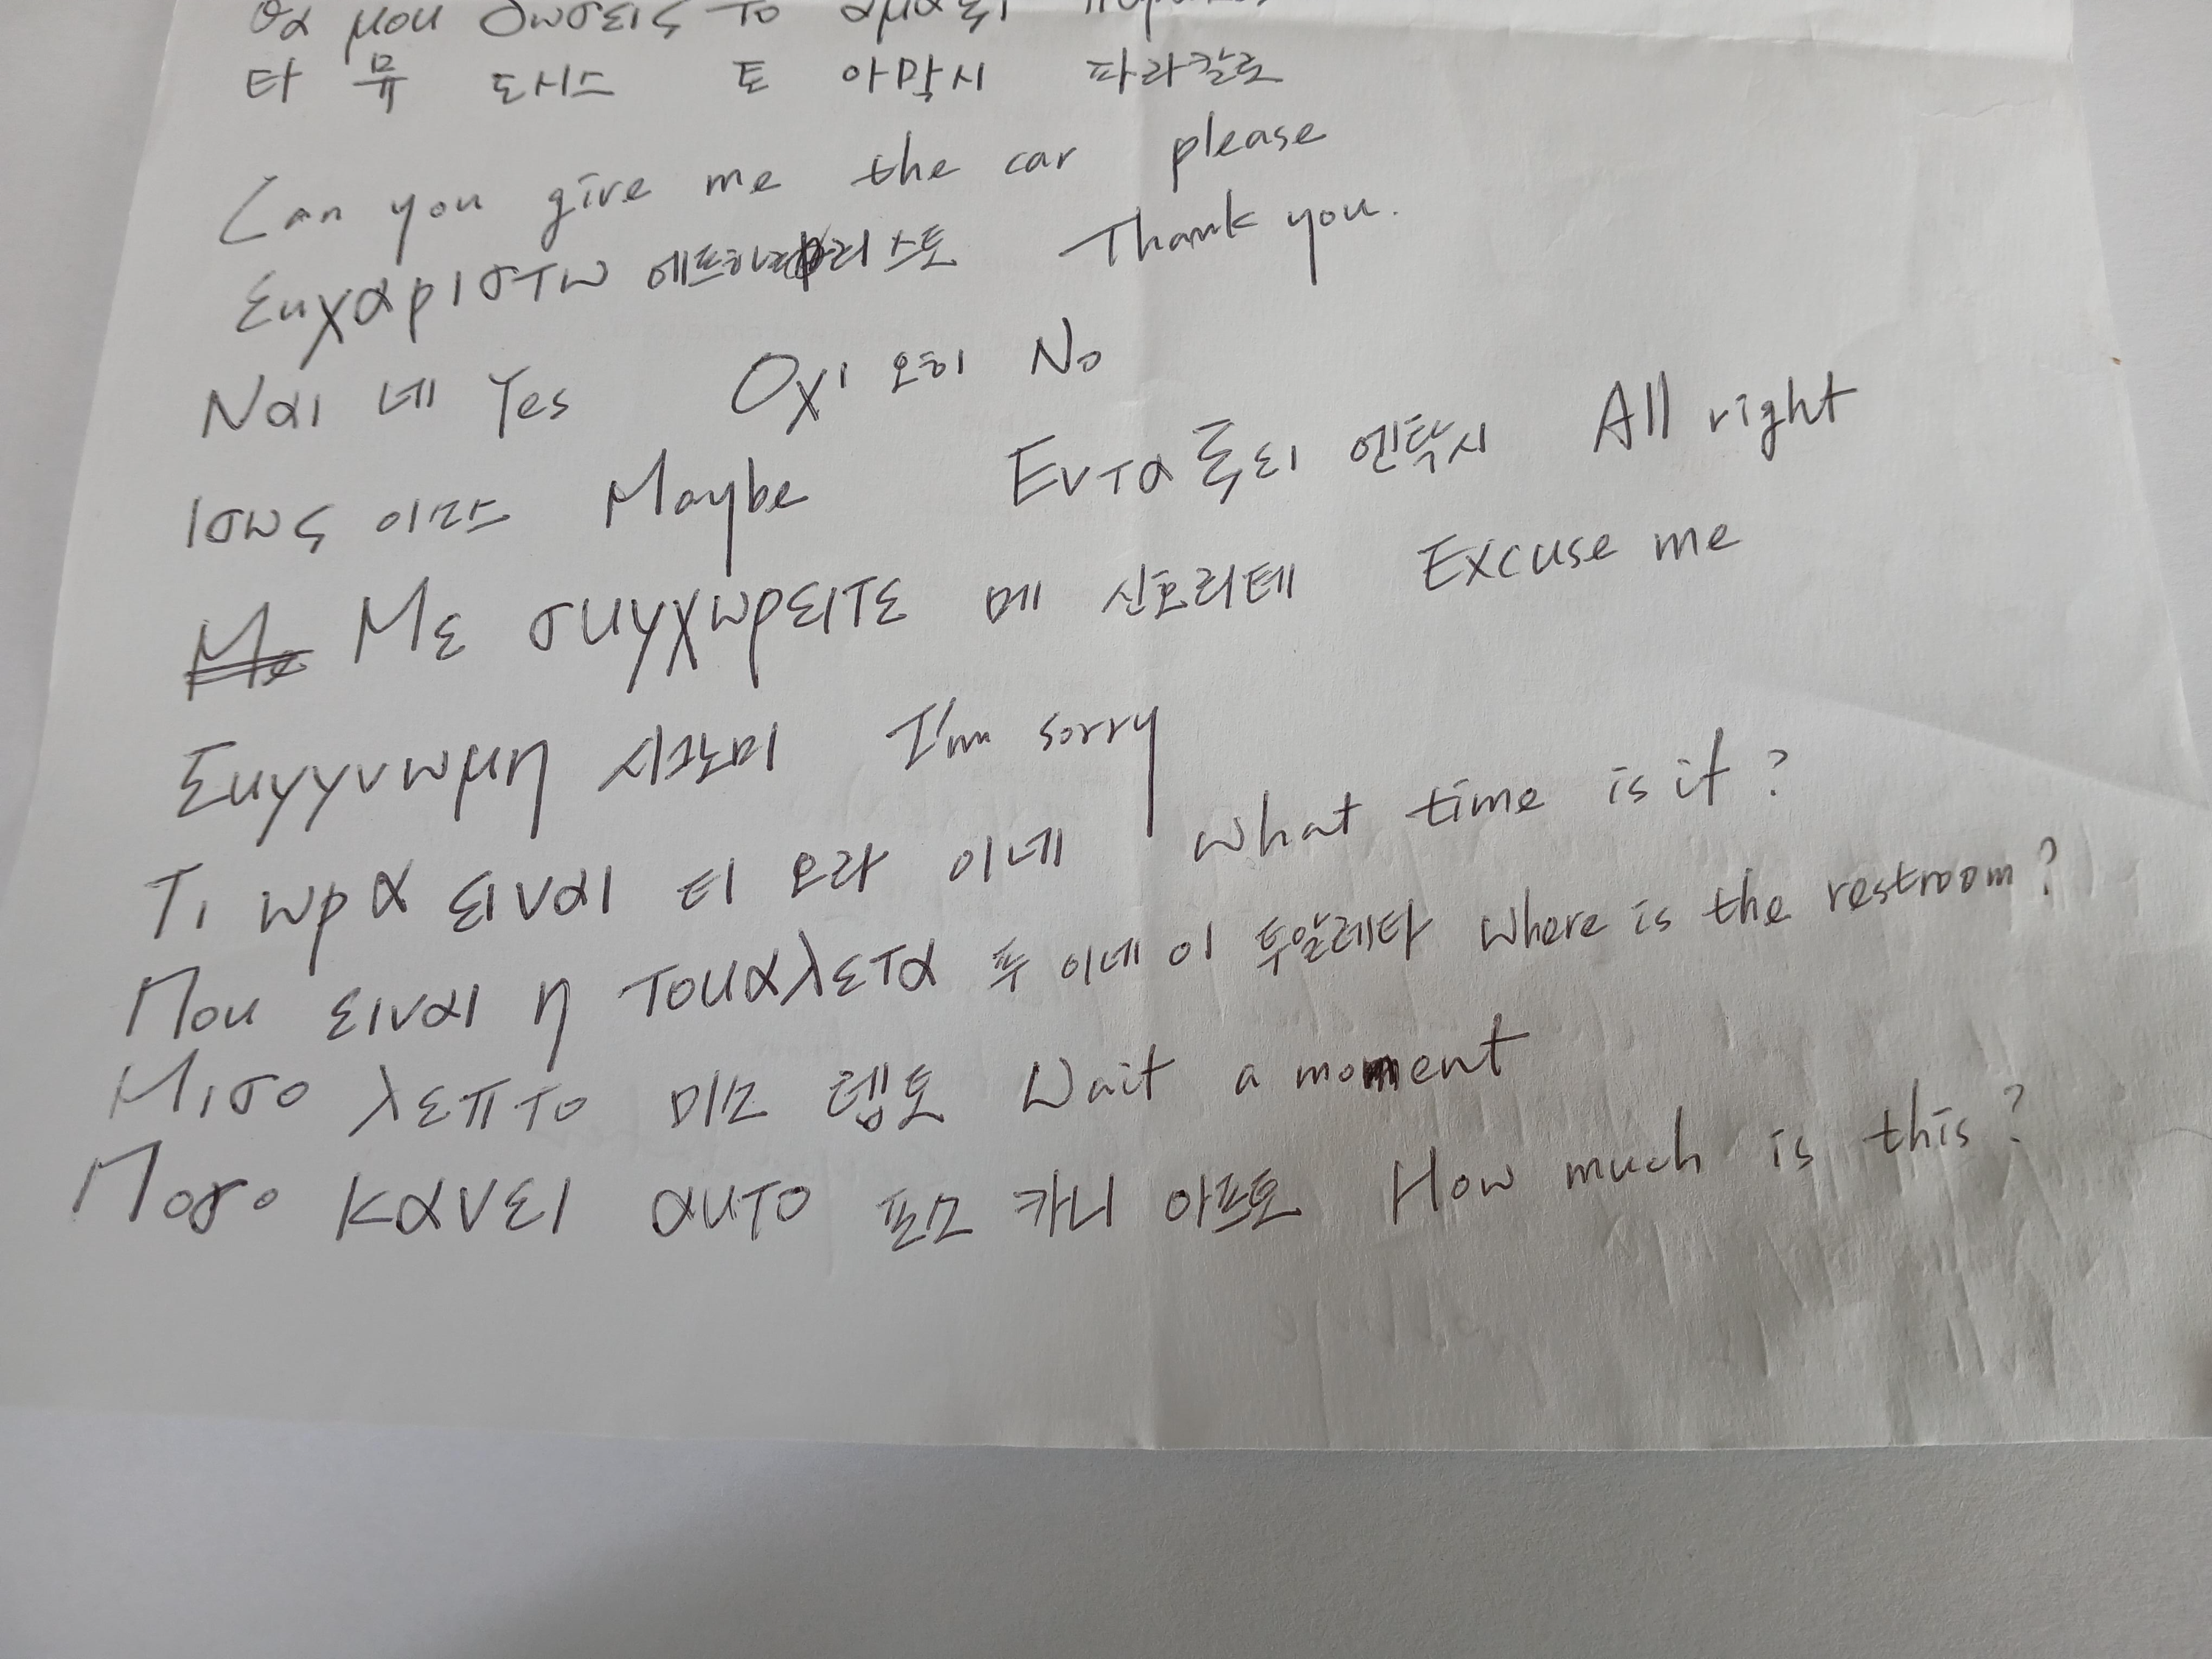 θα μου δωσεις το αμαξι
타 뮤 도시스 토 아막시 파라칼로
Can you give me the car please
Ευχαριστω 에프하리스토 Thank you.
Ναι 네 Yes Οχι 오히 No
Ισως 이소스 Maybe Ενταξει 엔탁시 All right
Με Με συγχωρειτε 메 신호리테 Excuse me
Συγγνωμη 시그노미 I'm sorry
Τι ωρα ειναι 티 오라 이네 What time is it?
Που ειναι η τουαλετα 푸 이네 이 투알레타 Where is the restroom?
Μισο λεπτο 미소 렙토 Wait a moment
Ποσο κανει αυτο 포소 카니 아프토 How much is this?